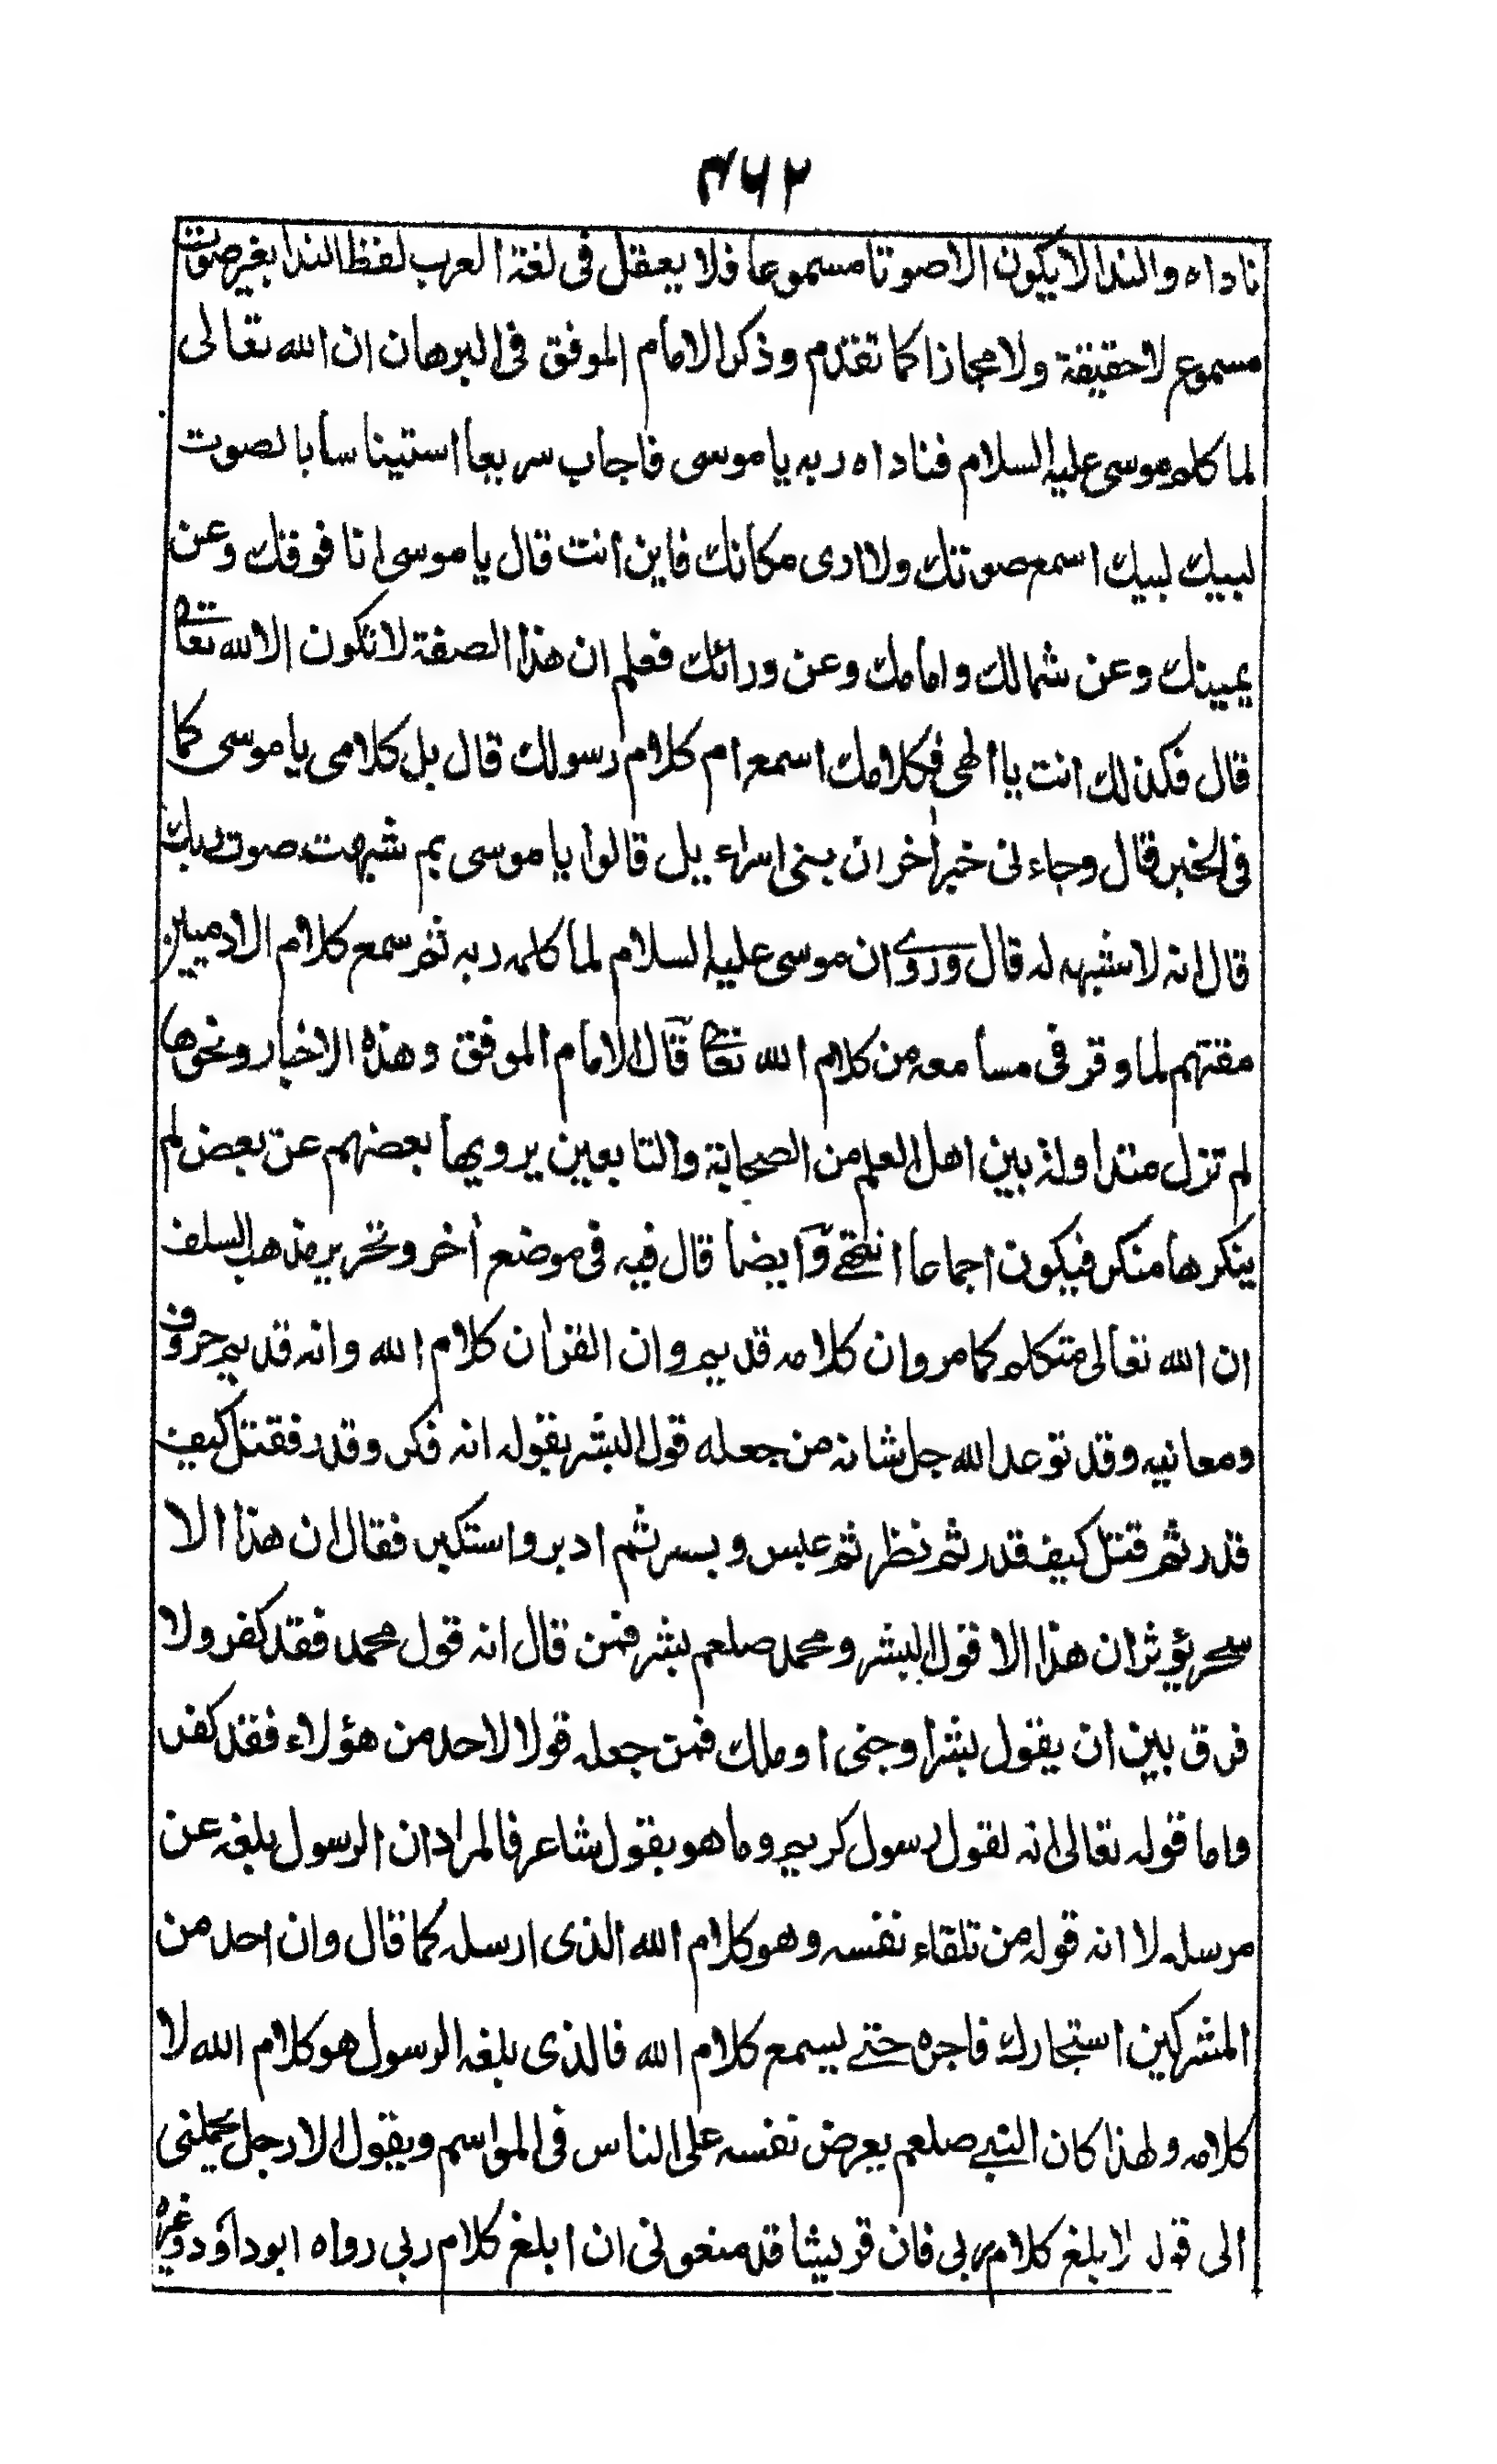 ٣٦٢
ناداه والندا لا يكون الا صوتا مسموعا فلا يعقل فى لغة العرب لفظ الندا بغير صوت
مسموع لا حقيقة ولا مجازا كما تقدم وذكر الامام الموفق فى البرهان ان الله تعالى
لما كلم موسى عليه السلام فناداه ربه يا موسى فاجاب سريعا استيناسا بالصوت
لبيك لبيك اسمع صوتك ولا ارى مكانك فاين انت قال يا موسى انا فوقك وعن
يمينك وعن شمالك وامامك وعن ورائك فعلم ان هذا الصفة لا تكون الا لله تعا
قال فكذلك انت يا الهى فكلامك اسمع ام كلام رسولك قال بل كلامى يا موسى كما
فى الخبر قال وجاء فى خبر أخر ان بنى اسراءيل قالوا يا موسى بم شبهت صوت ربك
قال انه لا شبه له قال وروى ان موسى عليه السلام لما كلمه ربه ثم سمع كلام الادميين
مقتهم لما وقر فى مسامعه من كلام الله تعا قال الامام الموفق وهذه الاخبار ونحوها
لم تزل متداولة بين اهل العلم من الصحابة والتابعين يرويها بعضهم عن بعض لم
ينكرها منكر فيكون اجماعا انتهى وأيضا قال فيه فى موضع أخر وتحرير مذهب السلف
ان الله تعالى متكلم كما مر وان كلامه قديم وان القرأن كلام الله وانه قديم حروفه
ومعانيه وقد توعد الله جل شانه من جعله قول البشر بقوله انه فكر وقدر فقتل كيف
قدر ثم قتل كيف قدر ثم نظر ثم عبس وبسر ثم ادبر واستكبر فقال ان هذا الا
سحر يؤثر ان هذا الا قول البشر ومحمد صلعم بشر فمن قال انه قول محمد فقد كفر ولا
فرق بين ان يقول بشر اوجنى او ملك فمن جعله قولا لاحد من هؤلاء فقد كفر
واما قوله تعالى انه لقول رسول كريم وما هو بقول شاعر فالمراد ان الرسول بلغه عن
مرسله لا انه قوله من تلقاء نفسه وهو كلام الله الذى ارسله كما قال وان احد من
المشركين استجارك فاجره حتى يسمع كلام الله فالذى بلغه الرسول هو كلام الله لا
كلامه ولهذا كان النبى صلعم يعرض نفسه على الناس فى المواسم ويقول الا رجل يحملنى
الى قوله لابلغ كلام ربى فان قريشا قد منعونى ان ابلغ كلام ربى رواه ابوداؤد وغيره